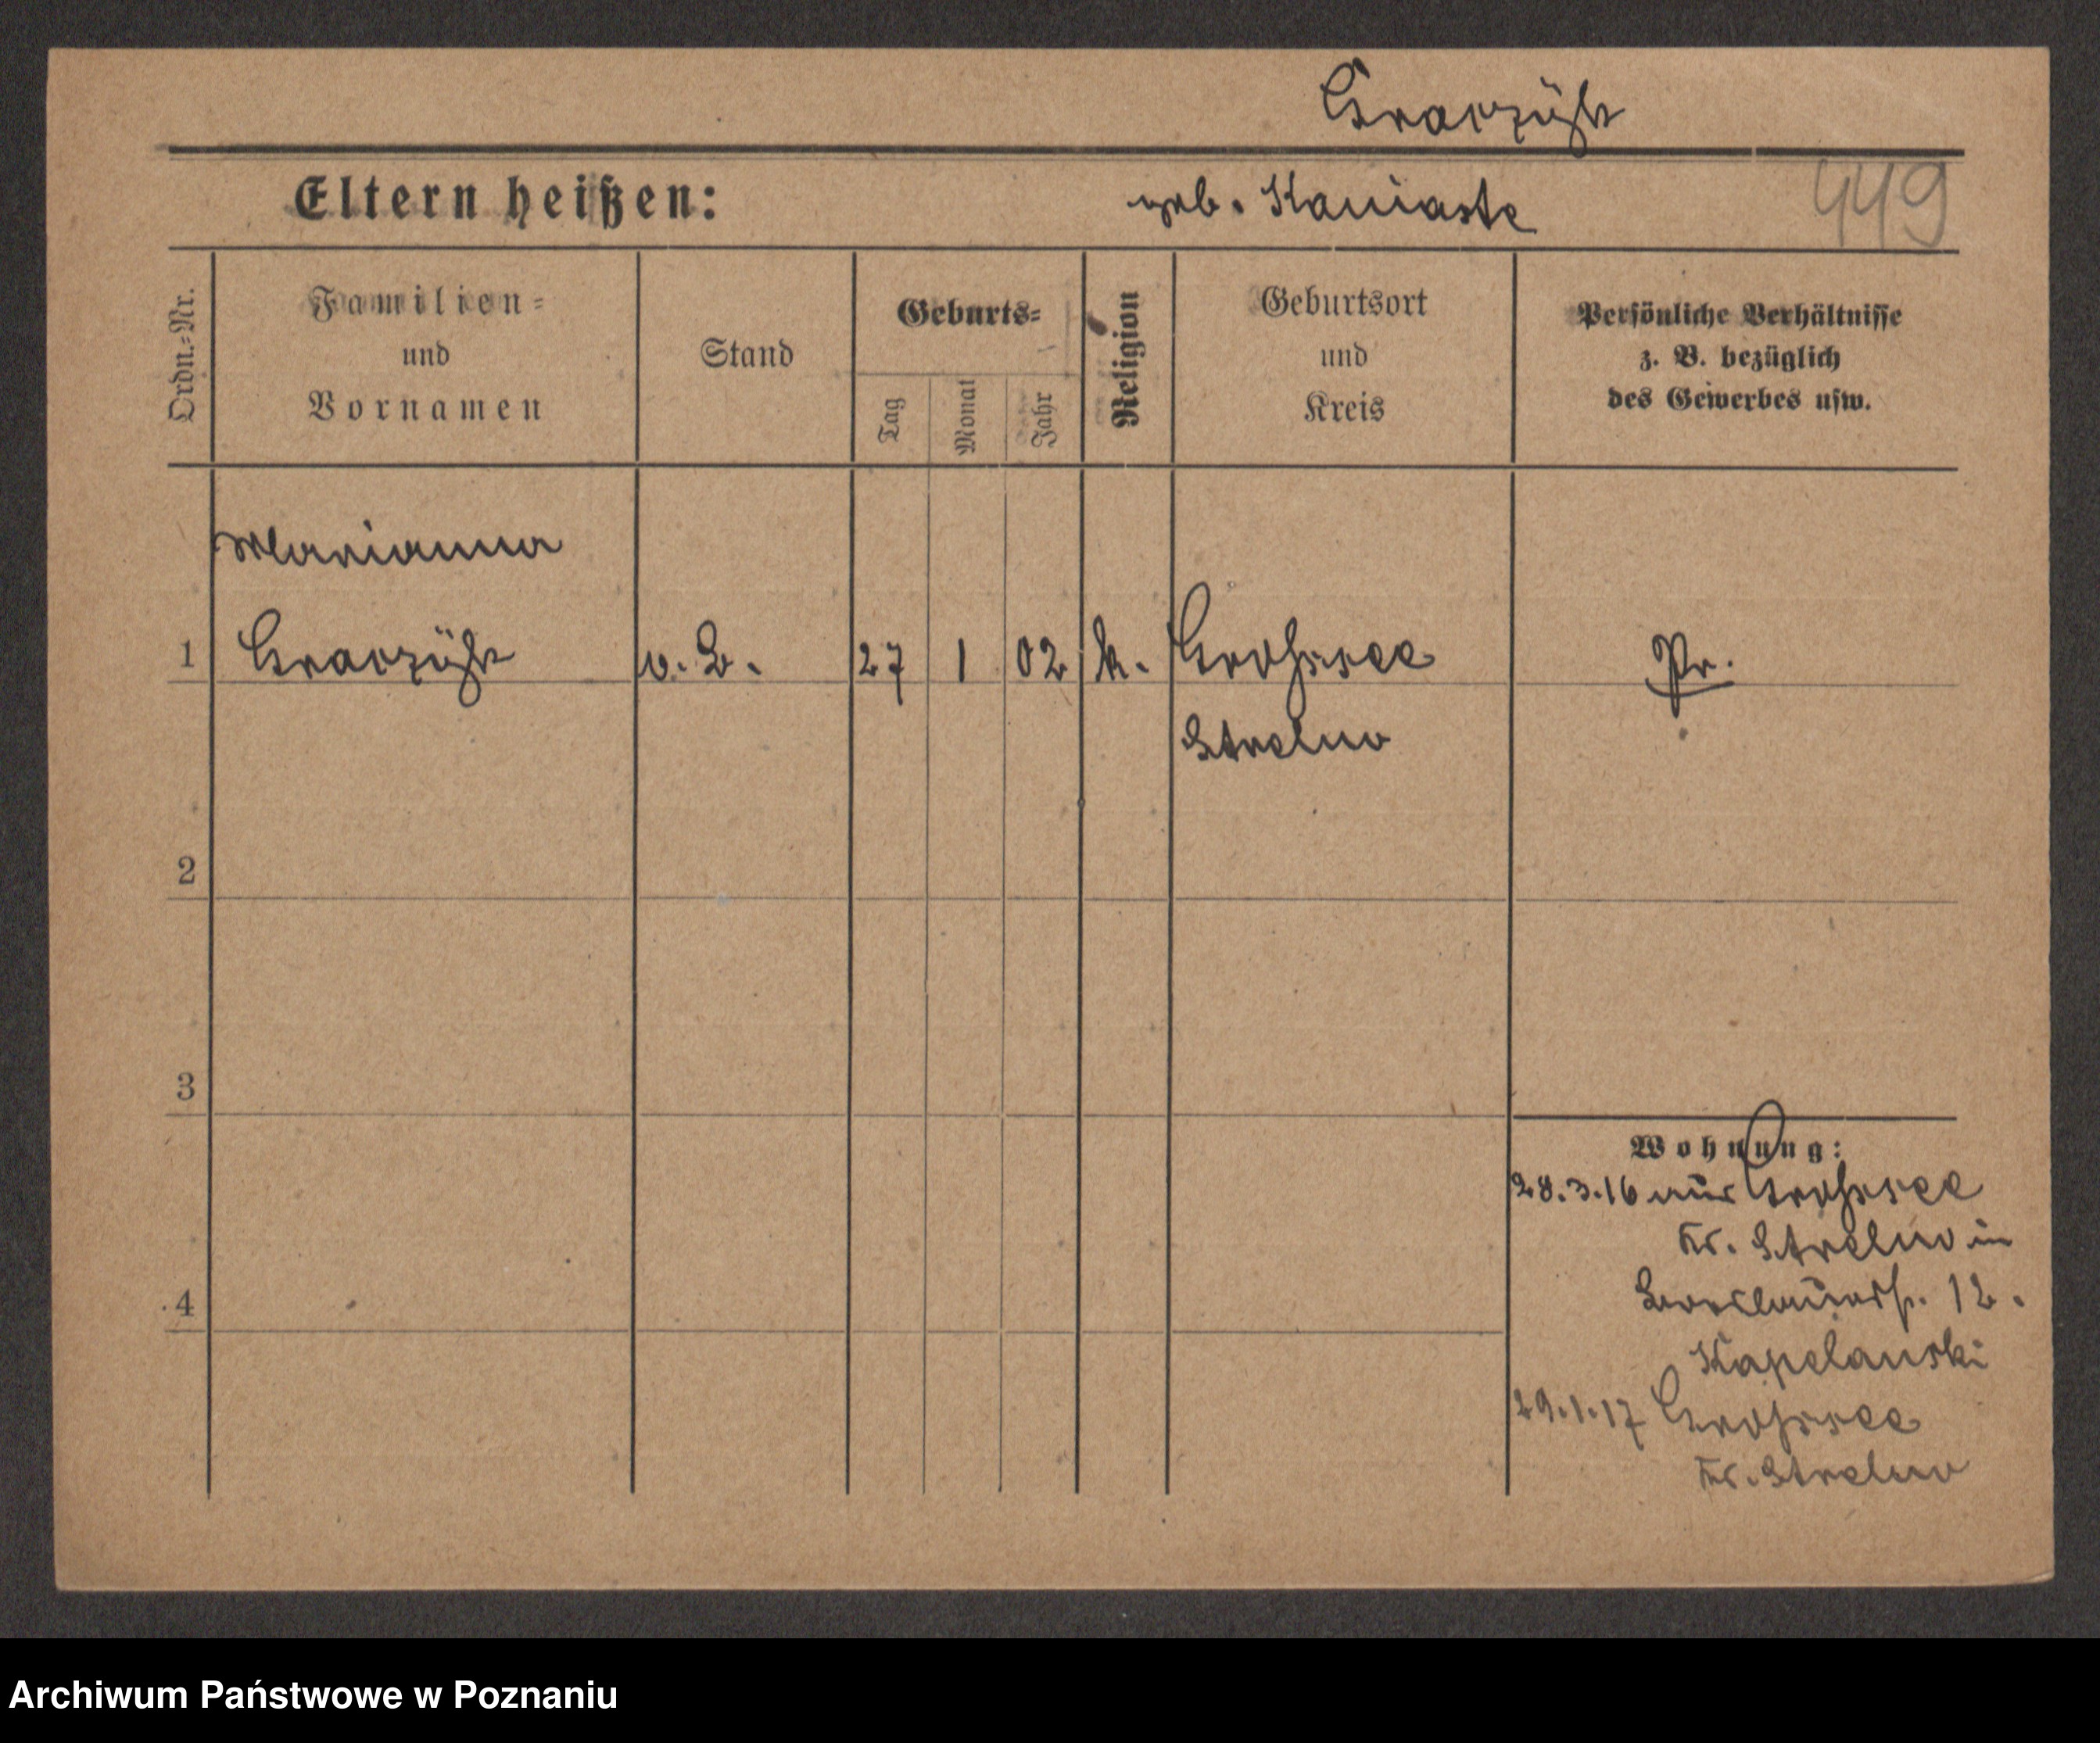 Graczyk
Eltern heißen: geb. Kaniaste 449
Ordn.-Nr.
Familien-
und
Vornamen
Stand
Geburts-
Tag
Monat
Jahr
Religion
Geburtsort
und
Kreis
Persönliche Verhältnisse
z. B. bezüglich
des Gewerbes usw.
Marianna
1 o. B. 27 1 02 k. Grossee Pr.
Strelno
2
3
Wohnung:
28.3.16 aus Grossee
Kr. Strelno in
4 12.
Kapelanski
29.1.17 Grossee
Kr. Strelno
Archiwum Państwowe w Poznaniu